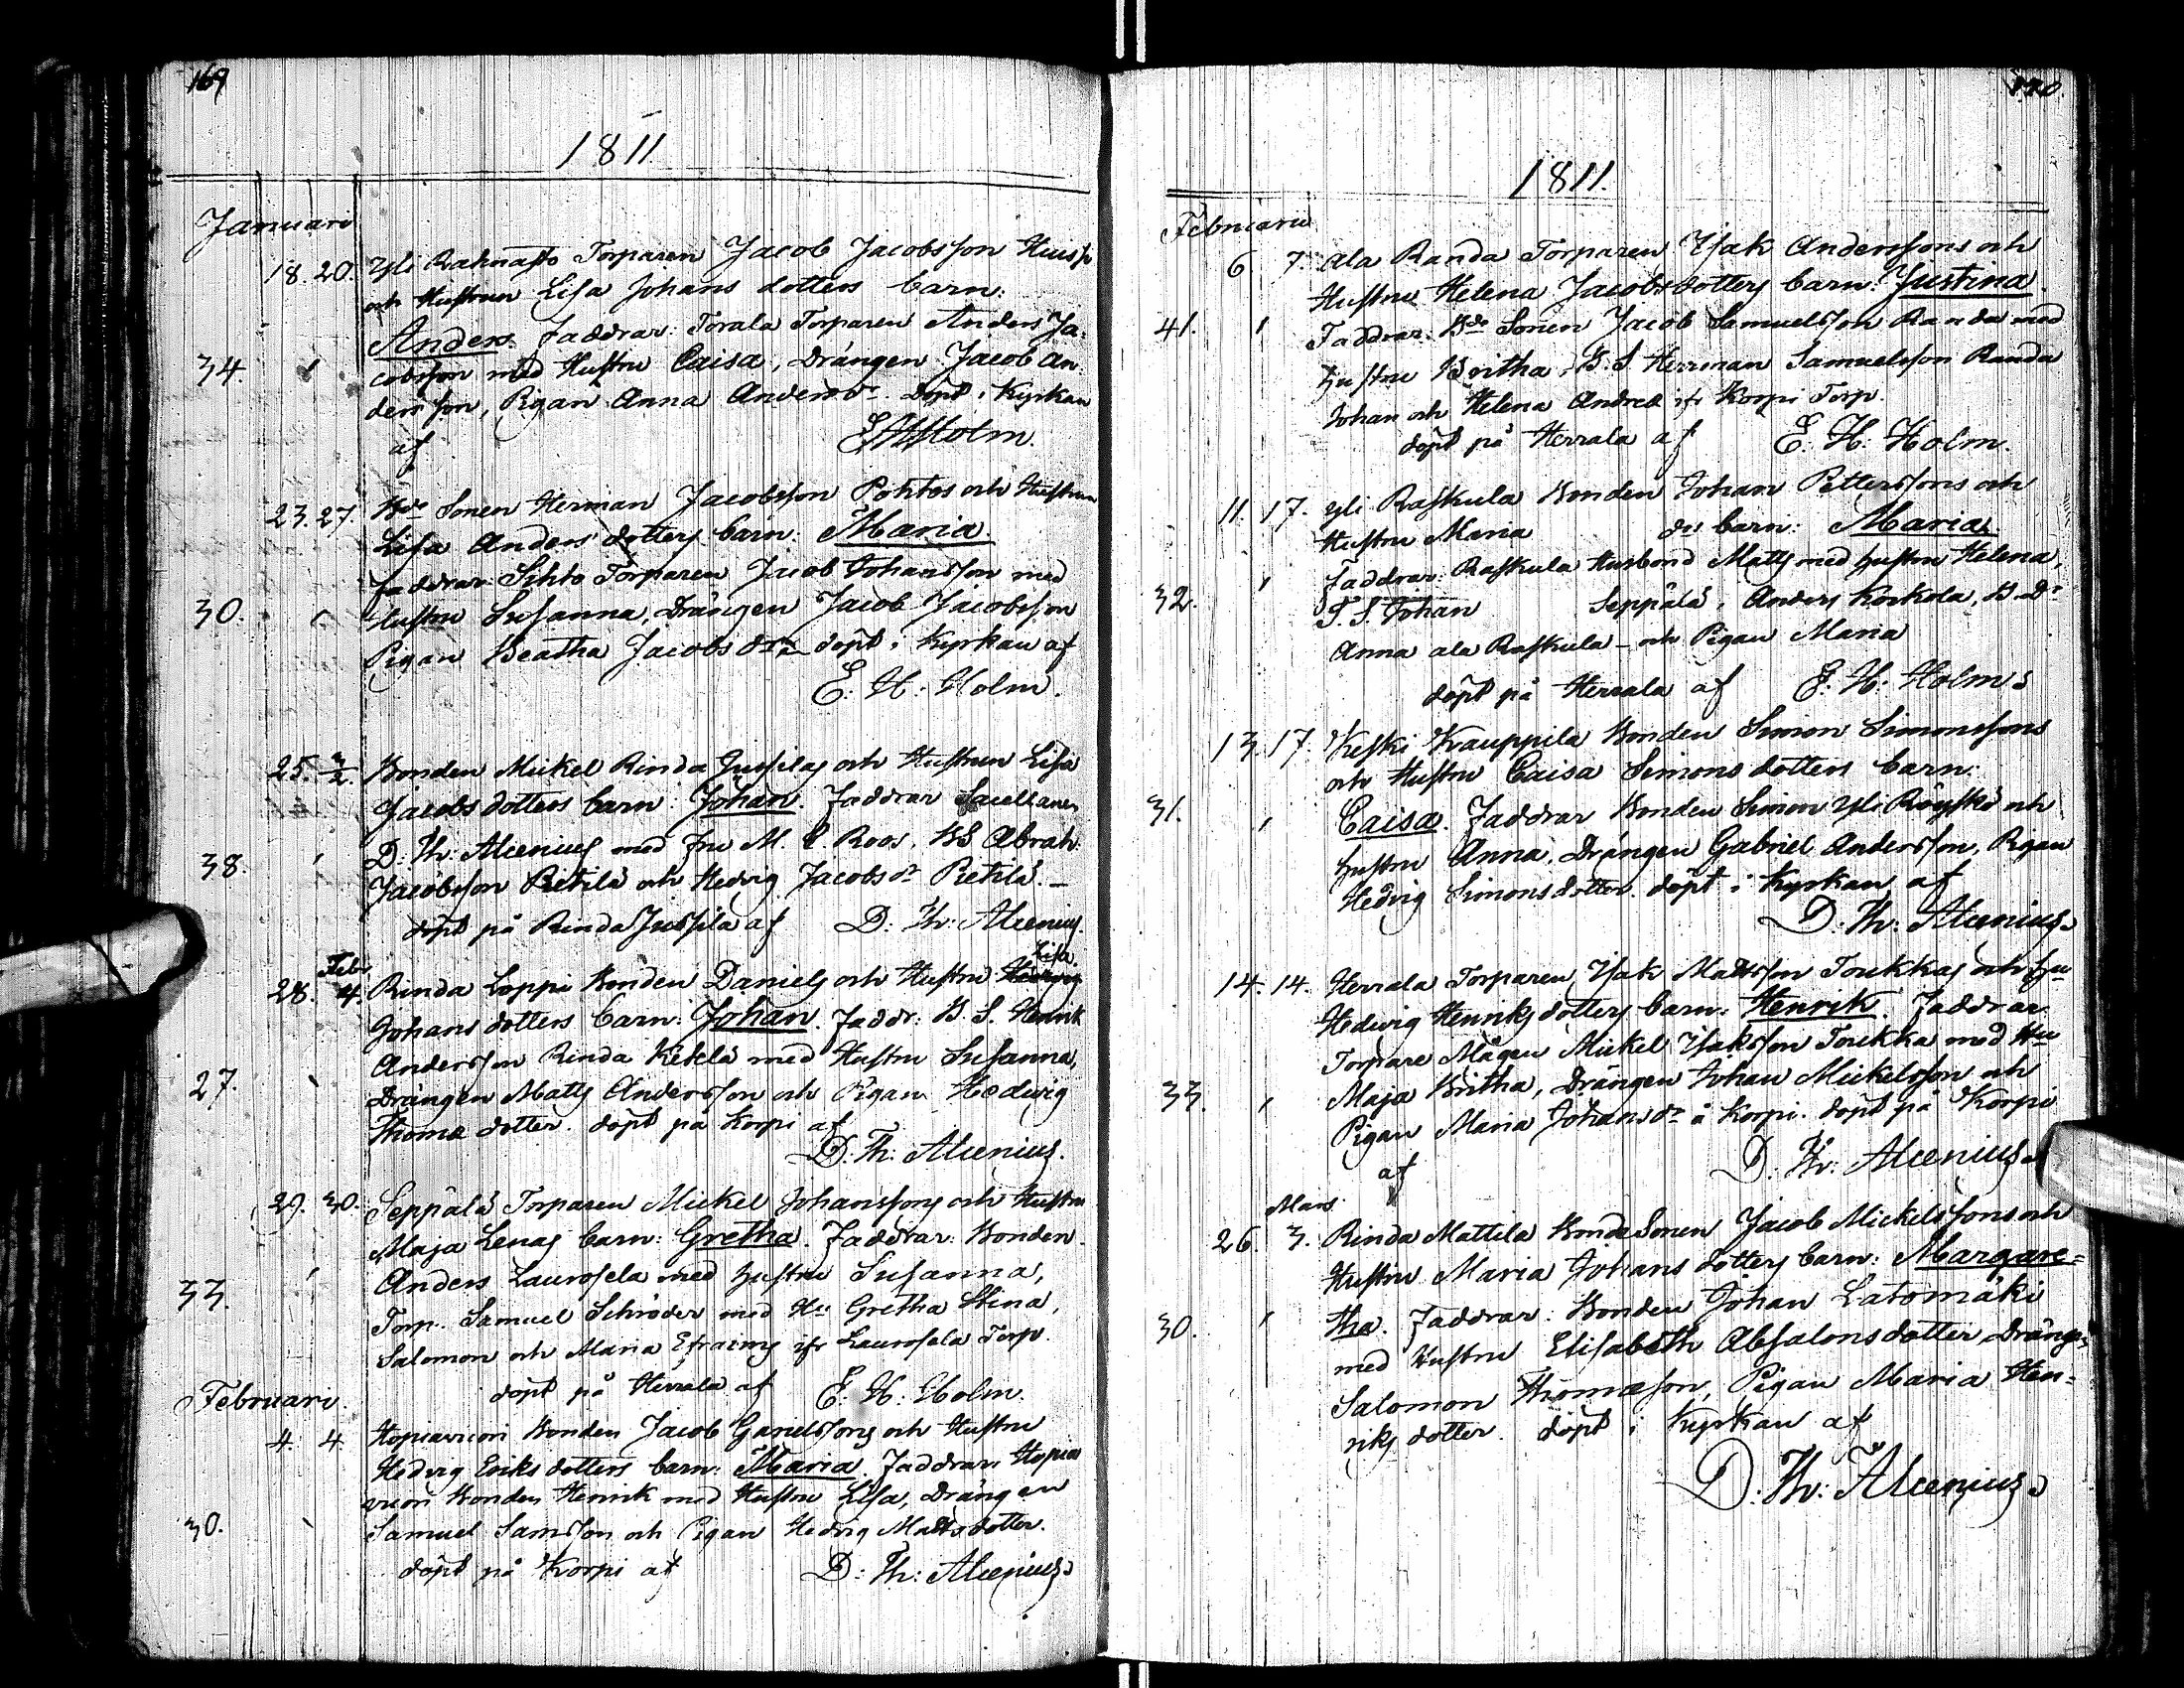 169
1811
Januari
18. 20. Yli Rahnasto Torparen Jacob Jacobsson
och Hustrun Lisa Johans dotters barn:
Anders. Faddrar: Torala Torparen Anders Ja-
34. cobsson med Hustru Caisa, Drängen Jacob An-
dersson, Pigan Anna Andersdr. döpt i Kyrkan
af E H Holm.
23. 27. Bde Sonen Herman Jacobsson Pohtos och Hustrun
Lisa Anders dotters barn: Maria
Faddrar: Torparen Jacob Johansson med
30. Hustru Susanna, Drängen Jacob Jacobsson
Pigan Beatha Jacobs dr döpt i Kyrkan af
E: H: Holm.
25. 3/2. Bonden Mickel Rinda Jussilas och Hustrun Lisa
Jacobs dotters barn: Johan. Faddrar Sacellanen
D: Th: Alcenius med Fru M. C Roos, BS Abrah.
38. Jacobsson Pietilä och Hedvig Jacobs dr Pietilä.
döpt på Rinda Jussila af D: Th: Alcenius.
Febr. Lisa
28. 4. Rinda Loppi Bonden Daniels och Hustru Hedvig
Johans dotters barn: Johan. Faddr: B. S. Henrik
Andersson Rinda Ketelä med Hustru Susanna,
27. Drängen Matts Andersson och Pigan Hedwig
Thomæ dotter. döpt på Korpi af
D: Th: Alcenius.
29. 30. Seppälä Torparen Mickel Johanssons och Hustru
Maja Lenas barn: Gretha. Faddrar: Bonden
Anders Laurosela med hustru Susanna,
33. Torp. Samuel Schröder med Hu Gretha Stina,
Salomon och Maria Efraims ifr Laurosela Torp
döpt på Herrala af E: H: Holm.
Februari.
4. 4. Hopiavuori Bonden Jacob Gabrielssons och Hustru
Hedvig Eriks dotters barn: Maria. Faddrar: Hopia
vuori Bonden Henrik med Hustru Lisa, Drängen
30. Samuel Samsson och Pigan Hedvig Matts dotter.
döpt på Korpi af D: Th: Alcenius
170.
1811.
Februarii
6. 7. Ala Randa Torparen Isak Anderssons och
Hustru Helena Jacobsdotters barn: Justina.
41. Faddrar: Bde Sonen Jacob Samuelsson Randa med
hustru Britha, B. S. Herrman Samuelsson Randa
Johan och Helena Andreæ ifr Korpi Torp.
döpt på Herrala af E: H: Holm.
11. 17. Yli Raskula Bonden Johan Petterssons och
Hustru Maria dr barn: Maria
32. Faddrar: Raskula Husbond Matts med hustru Helena,
T. S. Johan Seppälä, Anders Korkola, B. Dr
Anna ala Raskula - och Pigan Maria
döpt på Herrala af E: H: Holm
13. 17. Keski Krauppila Bonden Simon Simonssons
och Hustru Caisa Simons dotters barn:
31. Caisa. Faddrar Bonden Simon Yli Röyskö och
hustru Anna, Drängen Gabriel Andersson, Pigan
Hedvig Simons dotter. döpt i Kyrkan af
D: Th: Alcenius
14. 14. Herrala Torparen Isak Mattsson Toukkas och Hu
Hedwig Henriks dotters barn: Henrik. Faddrar
Torpare Mågen Mickel Isaksson Toukka med Hu
33. Maja Britha, Drängen Johan Mickelsson och
Pigan Maria Johans dr å Korpi. döpt på Korpi
af D: Th: Alcenius
Mars
26. 3. Rinda Mattila Bonde Sonen Jacob Mickelssons och
Hustru Maria Johans dotters barn: Margare-
30. tha. Faddrar: Bonden Johan Latomäki
med Hustru Elisabeth Absalons dotter, Dräng
Salomon Thomæson, Pigan Maria Hen-
riks dotter. döpt i Kyrkan af
D: Th: Alcenius